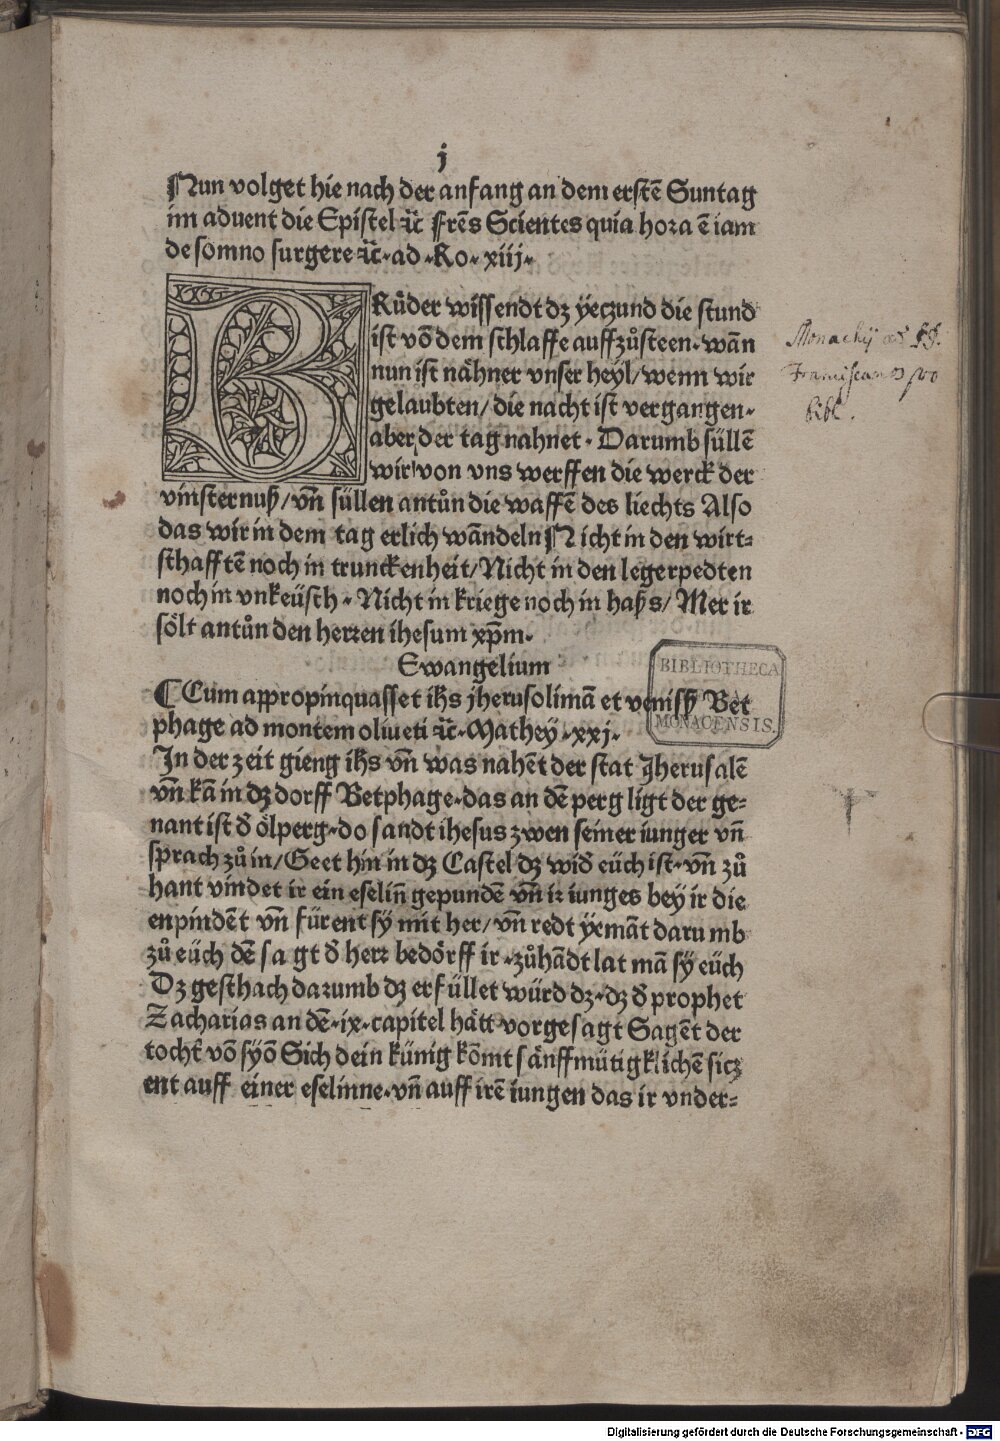 j
Nun volget hie nach der anfang an dem erstē Suntag
im aduent die Epistel ⁊c̈ Frēs Scientes quia hora ē iam
de somno surgere ⁊c̈. ad. Ro. xiij.
BRůder wissendt dz yeczund die stund
ist vō dem schlaffe auffzůsteen. wañ
nun ist nåhner vnser heyl/ wenn wir
gelaubten/ die nacht ist vergangen.
aber der tag nahnet. Darumb süllē
wir von vns werffen die werck der
vinsternuß/ vñ süllen antůn die waffē des liechts Also
das wir in dem tag erlich wandeln Nicht in den wirt⸗
schafftē noch in trunckenheit/ Nicht in den legerpedten
noch in vnkeüsch. Nicht in kriege noch in haßs/ Mer ir
sölt antůn den herren ihesum xp̄m.
Ewangelium
¶ Cum appropinquasset ihs jherusolimā et venissz Bet
phage ad montem oliueti ⁊c̈. Mathey. xxj.
In der zeit gieng ihs vñ was nahēt der stat Jherusalē
vñ kā in dz dorff Betphage. das an dē perg ligt der ge⸗
nant ist ď ölperg. do sandt ihesus zwen seiner iunger vñ
sprach zů in/ Geet hin in dz Castel dz wiď eüch ist. vñ zů
hant vindet ir ein eseliñ gepundē vñ ir iunges bey ir die
enpindēt vñ fürent sy mit her/ vñ redt yemāt darumb
zů eüch dē sagt ď herr bedörff ir. zůhādt lat mā sy eüch
Dz geschach darumb dz erfüllet würd dz. dz ď prophet
Zacharias an dē. ix. capitel hått vorgesagt Sagēt der
tocht̄ vō syō Sich dein künig kōmt sånffmütigklichē sicz
ent auff einer eselinne. vñ auff irē iungen das ir vnder⸗
Monachij ad
Franciscanos pro
bibl.
BIBLIOTHECA
MONACENSIS.
Digitalisierung gefördert durch die Deutsche Forschungsgemeinschaft - DFG